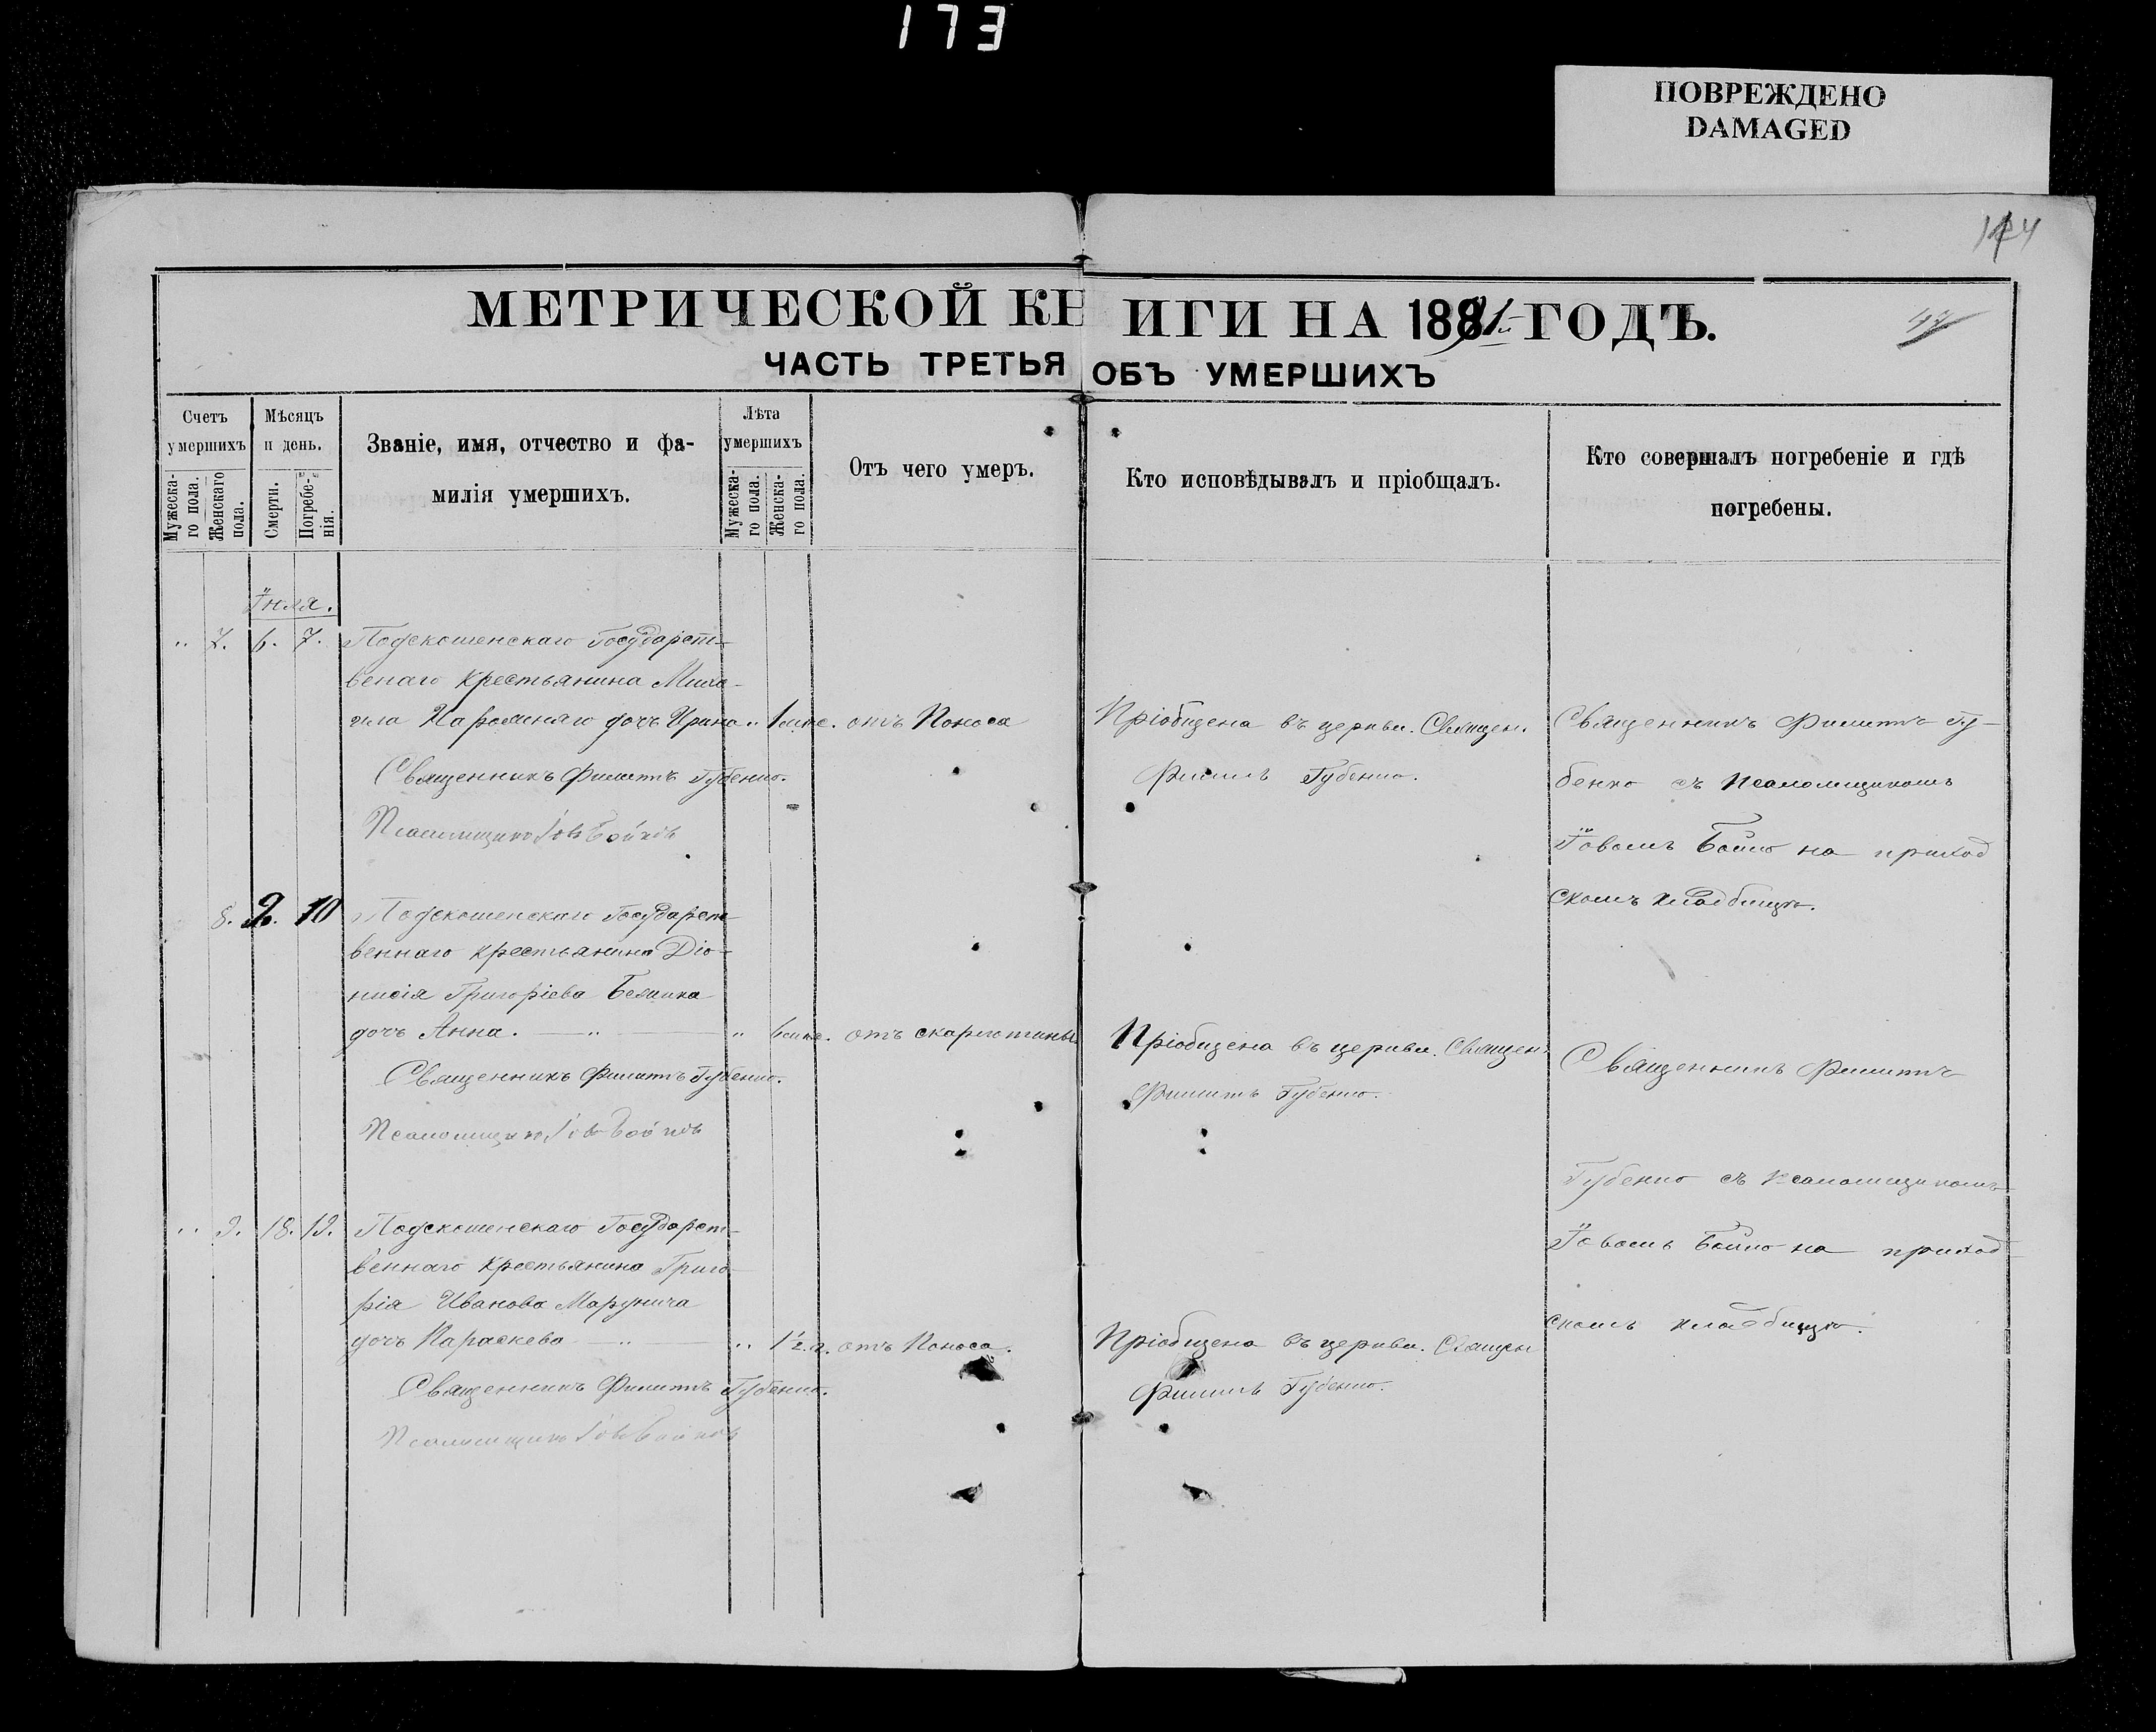 173
ПОВРЕЖДЕНО
DAMAGED
МЕТРИЧЕСКОЙ КНИГИ НА 1881 ГОДЪ.
ЧАСТЬ ТРЕТЬЯ ОБЪ УМЕРШИХЪ
Счетъ умершихъ
Мужеска-го пола.
Женскаго пола.
Мѣсяцъ и день.
Смерти.
Погребе-нія.
Званіе, имя, отчество и фа-
милія умершихъ.
Лѣта умершихъ
Мужеска-го пола.
Женска-го пола.
Отъ чего умеръ.
Кто исповѣдывалъ и пріобщалъ.
Кто совершалъ погребеніе и гдѣ
погребены.
Іюля.
" 7. 6. 7. Государст-
венаго крестьянина Миха-
ила дочь Ирина " 1 отъ Поноса
Священникъ Филиппъ Губенко.
Псаломщикъ Іовъ Бойко
Пріобщена въ церкви. Священ.
Филиппъ Губенко.
Священникъ Филиппъ Гу-
бенко съ Псаломщикомъ
Іовомъ Бойко на приход
скомъ кладбищѣ.
8. 10 Государст-
веннаго крестьянина Діо-
нисія Григоріева
дочь Анна. " " 6 отъ скарлотины
Священникъ Филиппъ Губенко.
Псаломщикъ Іовъ Бойко
Пріобщена въ церкви. Священ.
Филиппъ Губенко.
Священникъ Филиппъ
Губенко съ Псаломщикомъ
Іовомъ Бойко на приход
скомъ кладбищѣ.
" 9. 18. 19. Государст-
веннаго крестьянина Григо-
рія Иванова
дочь Параскева " " 1 г. отъ Поноса.
Священникъ Филиппъ Губенко.
Псаломщикъ Іовъ Бойко
Пріобщена въ церкви. Священ
Филиппъ Губенко.